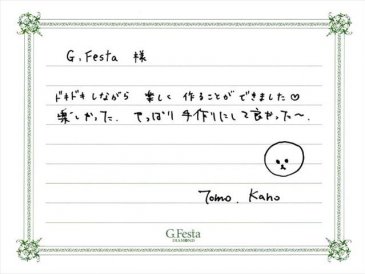 G.Festa 様
ドキドキしながら 楽しく 作ることが できました♡
楽しかった. やっぱり 手作りにして良かった〜.
Tomo. Kaho
G.Festa
DIAMOND